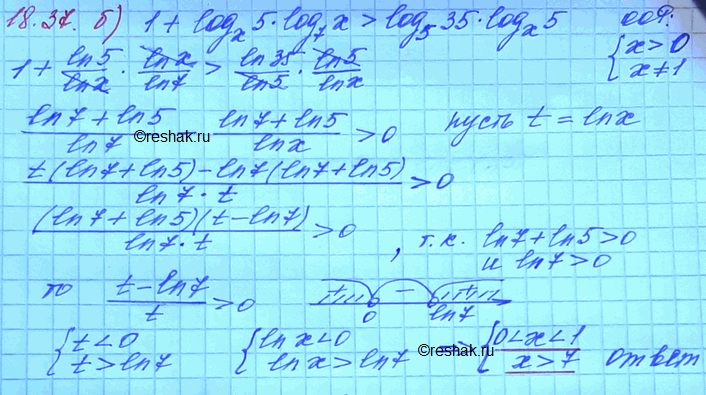 18.37. б) 1 + log_x 5 · log_7 x > log_5 35 · log_x 5
ООФ: { x > 0
x ≠ 1
1 + ln5/lnx · lnx/ln7 > ln35/ln5 · ln5/lnx
(ln7 + ln5)/ln7 - (ln7 + ln5)/lnx > 0 пусть t = lnx
©reshak.ru
(t(ln7 + ln5) - ln7(ln7 + ln5))/(ln7 · t) > 0
((ln7 + ln5)(t - ln7))/(ln7 · t) > 0 , т.к. ln7 + ln5 > 0
и ln7 > 0
то (t - ln7)/t > 0 + - + 0 ln7
{ t < 0 { lnx < 0 => { 0 < x < 1
t > ln7 lnx > ln7 x > 7 ответ
©reshak.ru